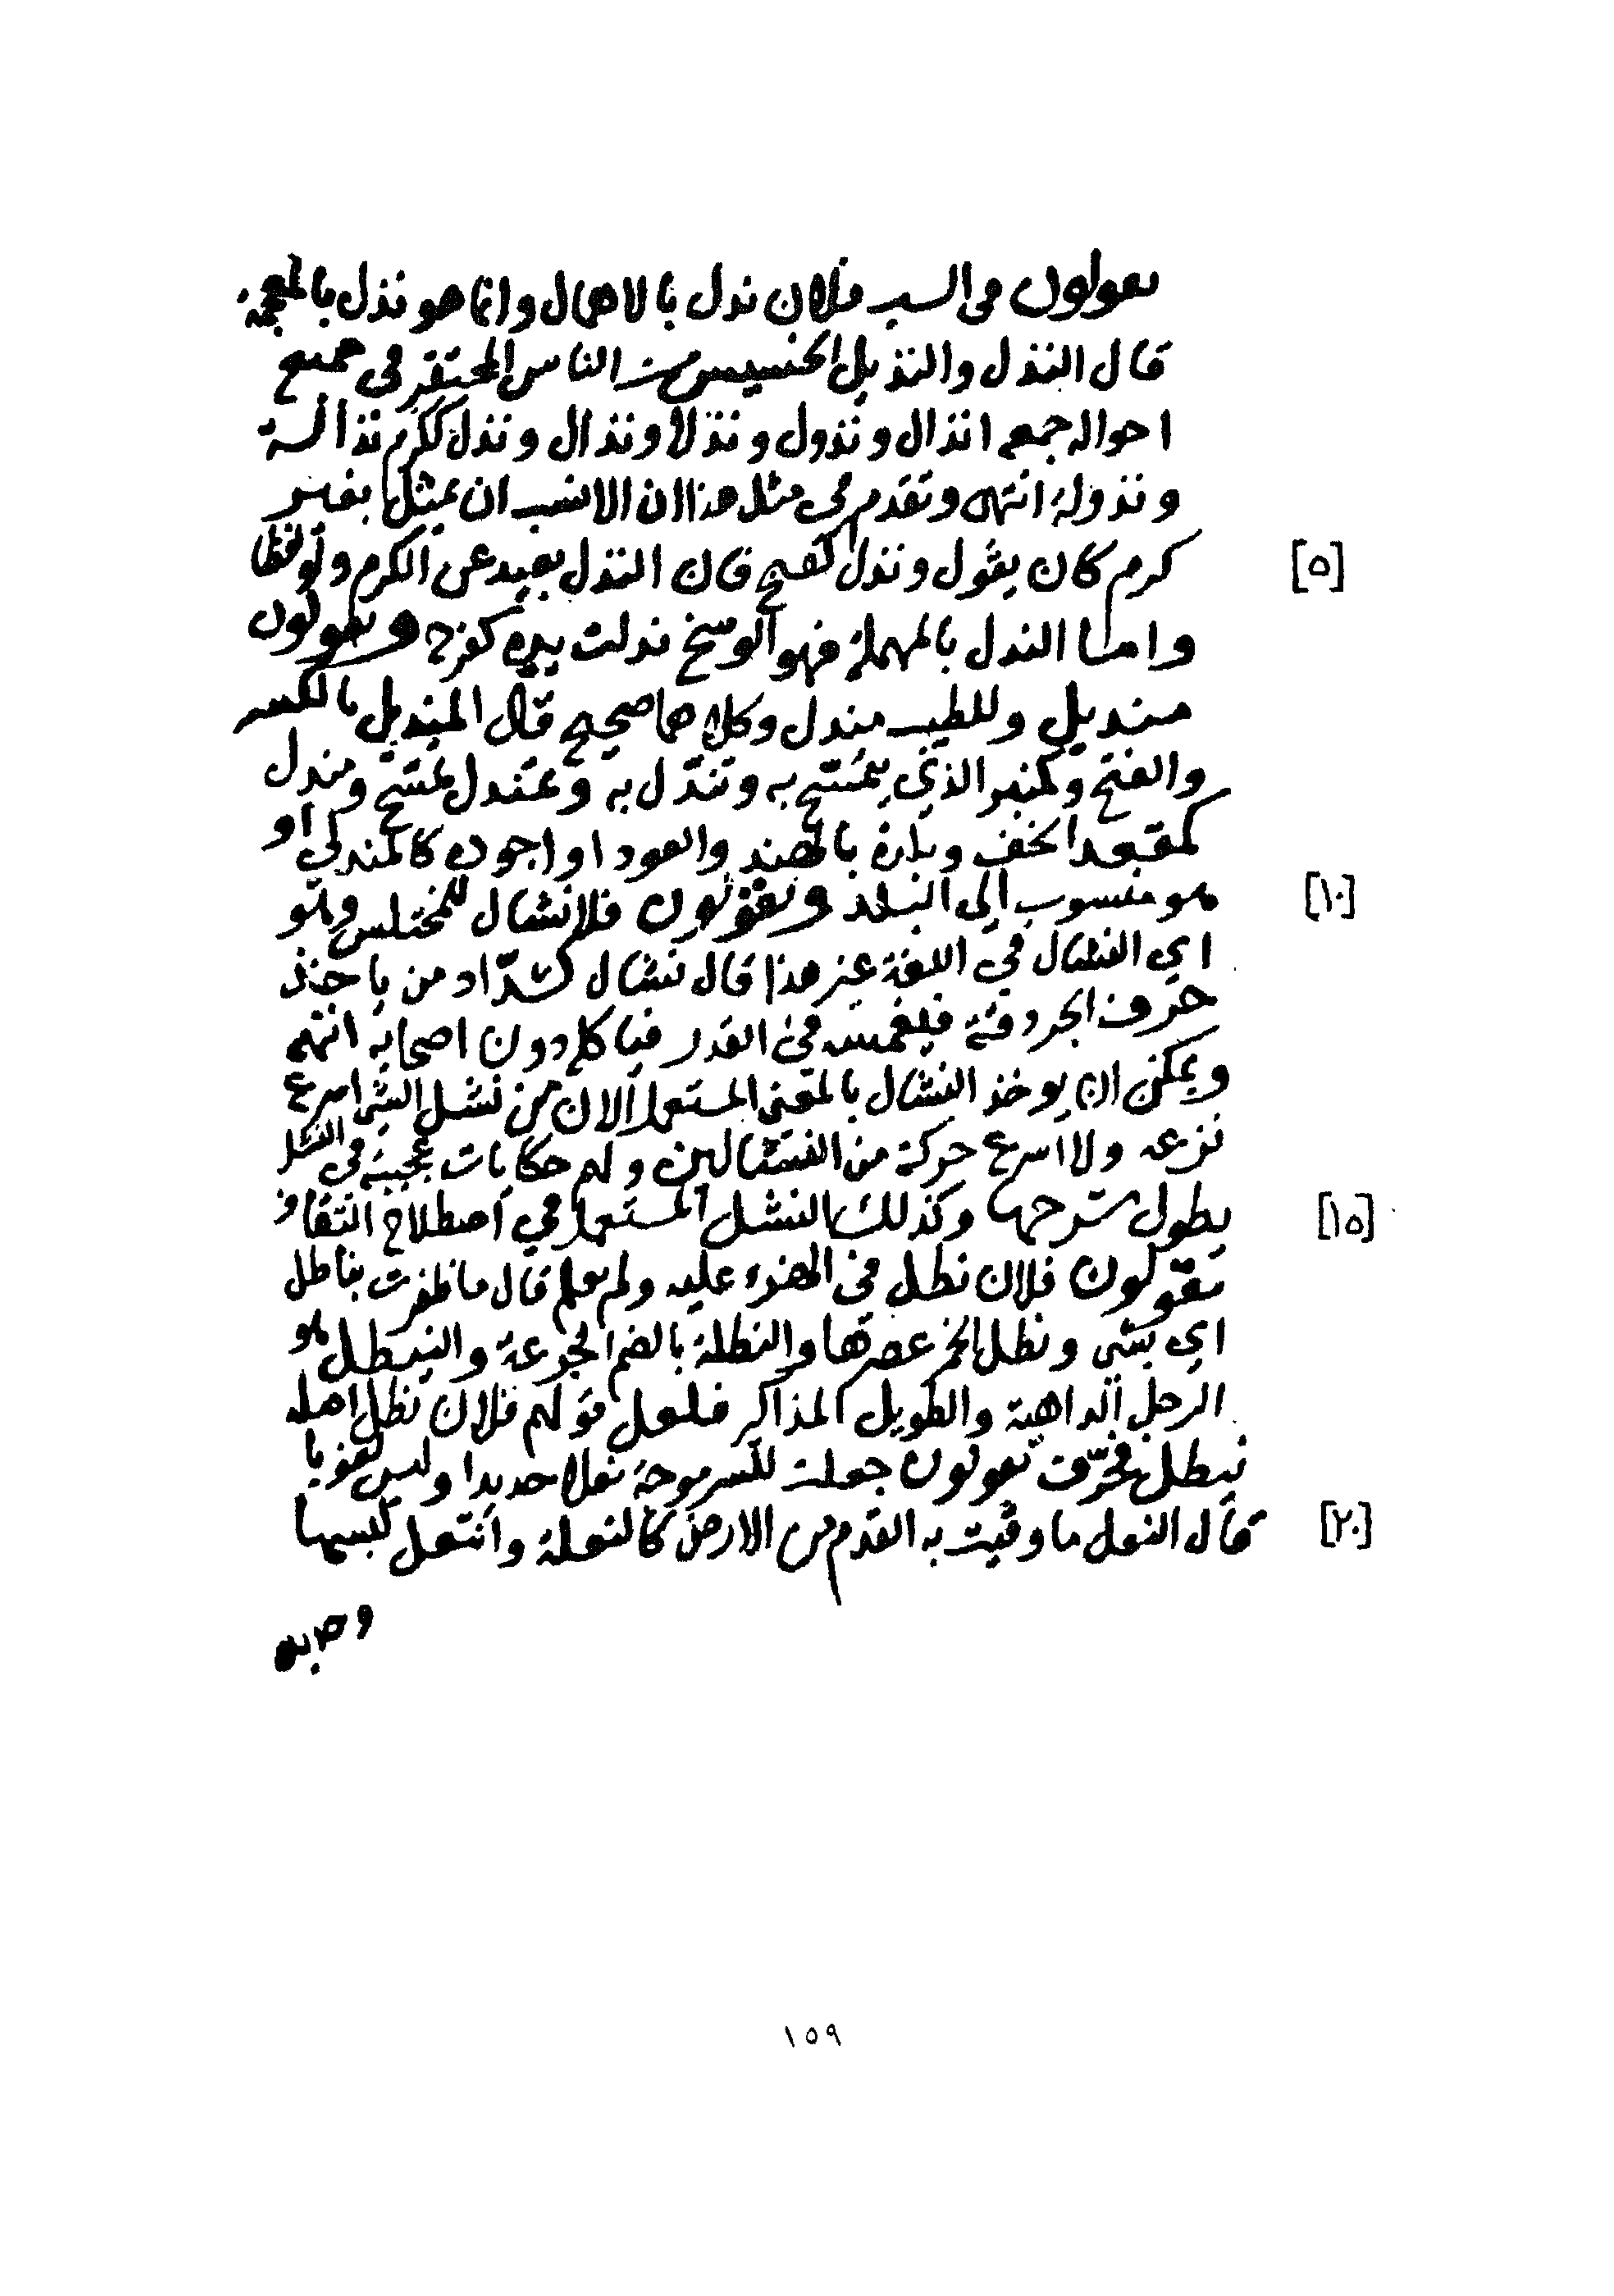 يقولون في السب فلان ندل بالاهمال وانما هو نذل بالمعجمة
قال النذل والنذيل الخسيس من الناس المحتقر في جميع
احواله جمعه انذال ونذول ونذلا ونذال ونذل ككرم نذالة
ونذولة انتهى وتقدم في مثل هذا ان الانسب ان يمثل بغير
[٥] كرم كان يقول ونذل كقبح فان النذل بعيد عن الكرم ولو لفظا
واما الندل بالمهملة فهو الوسخ ندلت يده كفرح ويقولون
منديل وللطيب مندل وكلاهما صحيح قال المنديل بالكسر
والفتح وكمنبر الذي يتمسح به وتندل به وتمندل تمسح ومندل
كمقعد الخف وبلدة بالهند والعود او اجوده كالمندلي او
[١٠] هو منسوب الى البلد ويقولون فلان نشال للمختلس وهو
اي النشال في اللغة غير هذا قال نشال كشدّاد من ياخذ
حرف الجردقة فيغمسه في القدر فياكله دون اصحابه انتهى
ويمكن ان يوخذ النشال بالمعنى المستعمل الان من نشل الشى اسرع
نزعه ولا اسرع حركة من النشالين ولهم حكايات عجيبة في النشل
[١٥] يطول شرحها وكذلك النشل المستعمل في اصطلاح الثقاف
يقولون فلان نطل في الهزء عليه ولم يعلم قال ما ظفرت بناطل
اي بشى ونطل الخمر عصرها والنطلة بالضم الجرعة والنيطل هو
الرجل الداهية والطويل المذاكر فلعل قولهم فلان نطل اصله
نيطل فحرّف يقولون جعلت للسرموجة نعلا حديدا وليس لغويا
[٢٠] قال النعل ما وقيت به القدم من الارض كالنعلة وانتعل لبسها
١٥٩